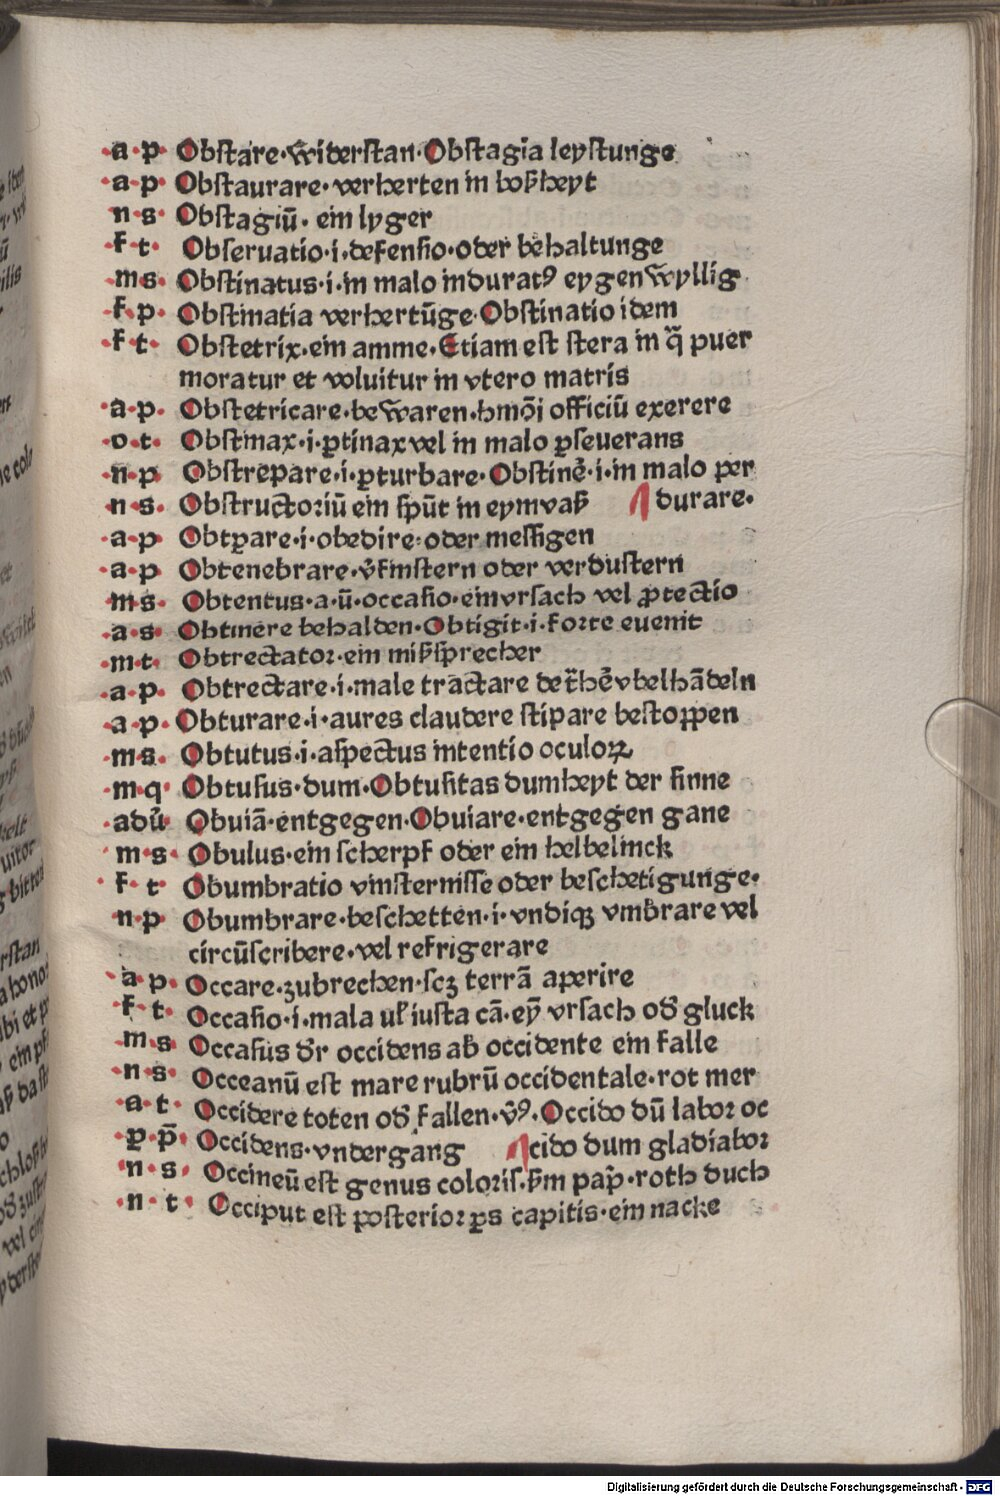 ·a·p· Obstare·widerstan·Obstagia leystunge
·a·p· Obstaurare·verherten in boßheyt
n·s· Obstagiū·ein lyger
·f·t· Obseruatio·i·defensio·oder behaltunge
·m·s· Obstinatus·i·in malo indurat⁹ eygenwyllig
·f·p· Obstinatia verhertūge·Obstinatio idem
·f·t· Obstetrix·ein amme·Etiam est stera in q̄ puer
moratur et voluitur in vtero matris
·a·p· Obstetricare·bewaren·hmōi officiū exerere
·o·t· Obstinax·i·ꝑtinax vel in malo ꝑseuerans
·n·p Obstrepare·i·ꝑturbare·Obstinē·i·in malo per
·n·s· Obstructoriū ein spūt in eymvaß durare·
·a·p Obtꝑare·i·obedire·oder messigen
·a·p Obtenebrare·v̄finstern oder verdustern
·m·s· Obtentus·a·ū·occasio·ein vrsach vel ꝓtectio
·a·s· Obtinere behalden·Obtigit·i·forte euenit
·m·t· Obtrectator·ein mißsprecher
·a·p· Obtrectare·i·male tractare de vbelhādeln
·a·p· Obturare·i·aures claudere stipare bestoppen
·m·s· Obtutus·i·aspectus intentio oculoꝝ
·m·q· Obtusus·dum·Obtusitas dumheyt der sinne
·adū· Obuiā·entgegen·Obuiare·entgegen gane
·m·s· Obulus·ein scherpf oder ein helbelinck
·f·t· Obumbratio vinsternisse oder beschetigunge·
·n·p Obumbrare·beschetten·i·vndiqꝫ vmbrare vel
circūscribere·vel refrigerare
·a·p· Occare·zubrechen·scꝫ terrā aperire
·f·t· Occasio·i·mala uł iusta cā·eȳ vrsach od̄ gluck
·m·s Occasus d̄r occidens ab occidente ein falle
·n·s· Occeanū est mare rubrū occidentale·rot mer
·a·t· Occidere toten od̄ fallen·v̄⁹·Occido dū labor oc
·p·p̄· Occidens·vndergang cido dum gladiabor
·n·s· Occineū est genus coloris·ßm pap̄·roth duch
·n·t· Occiput est posterior ꝑs capitis·ein nacke
Digitalisierung gefördert durch die Deutsche Forschungsgemeinschaft - DFG